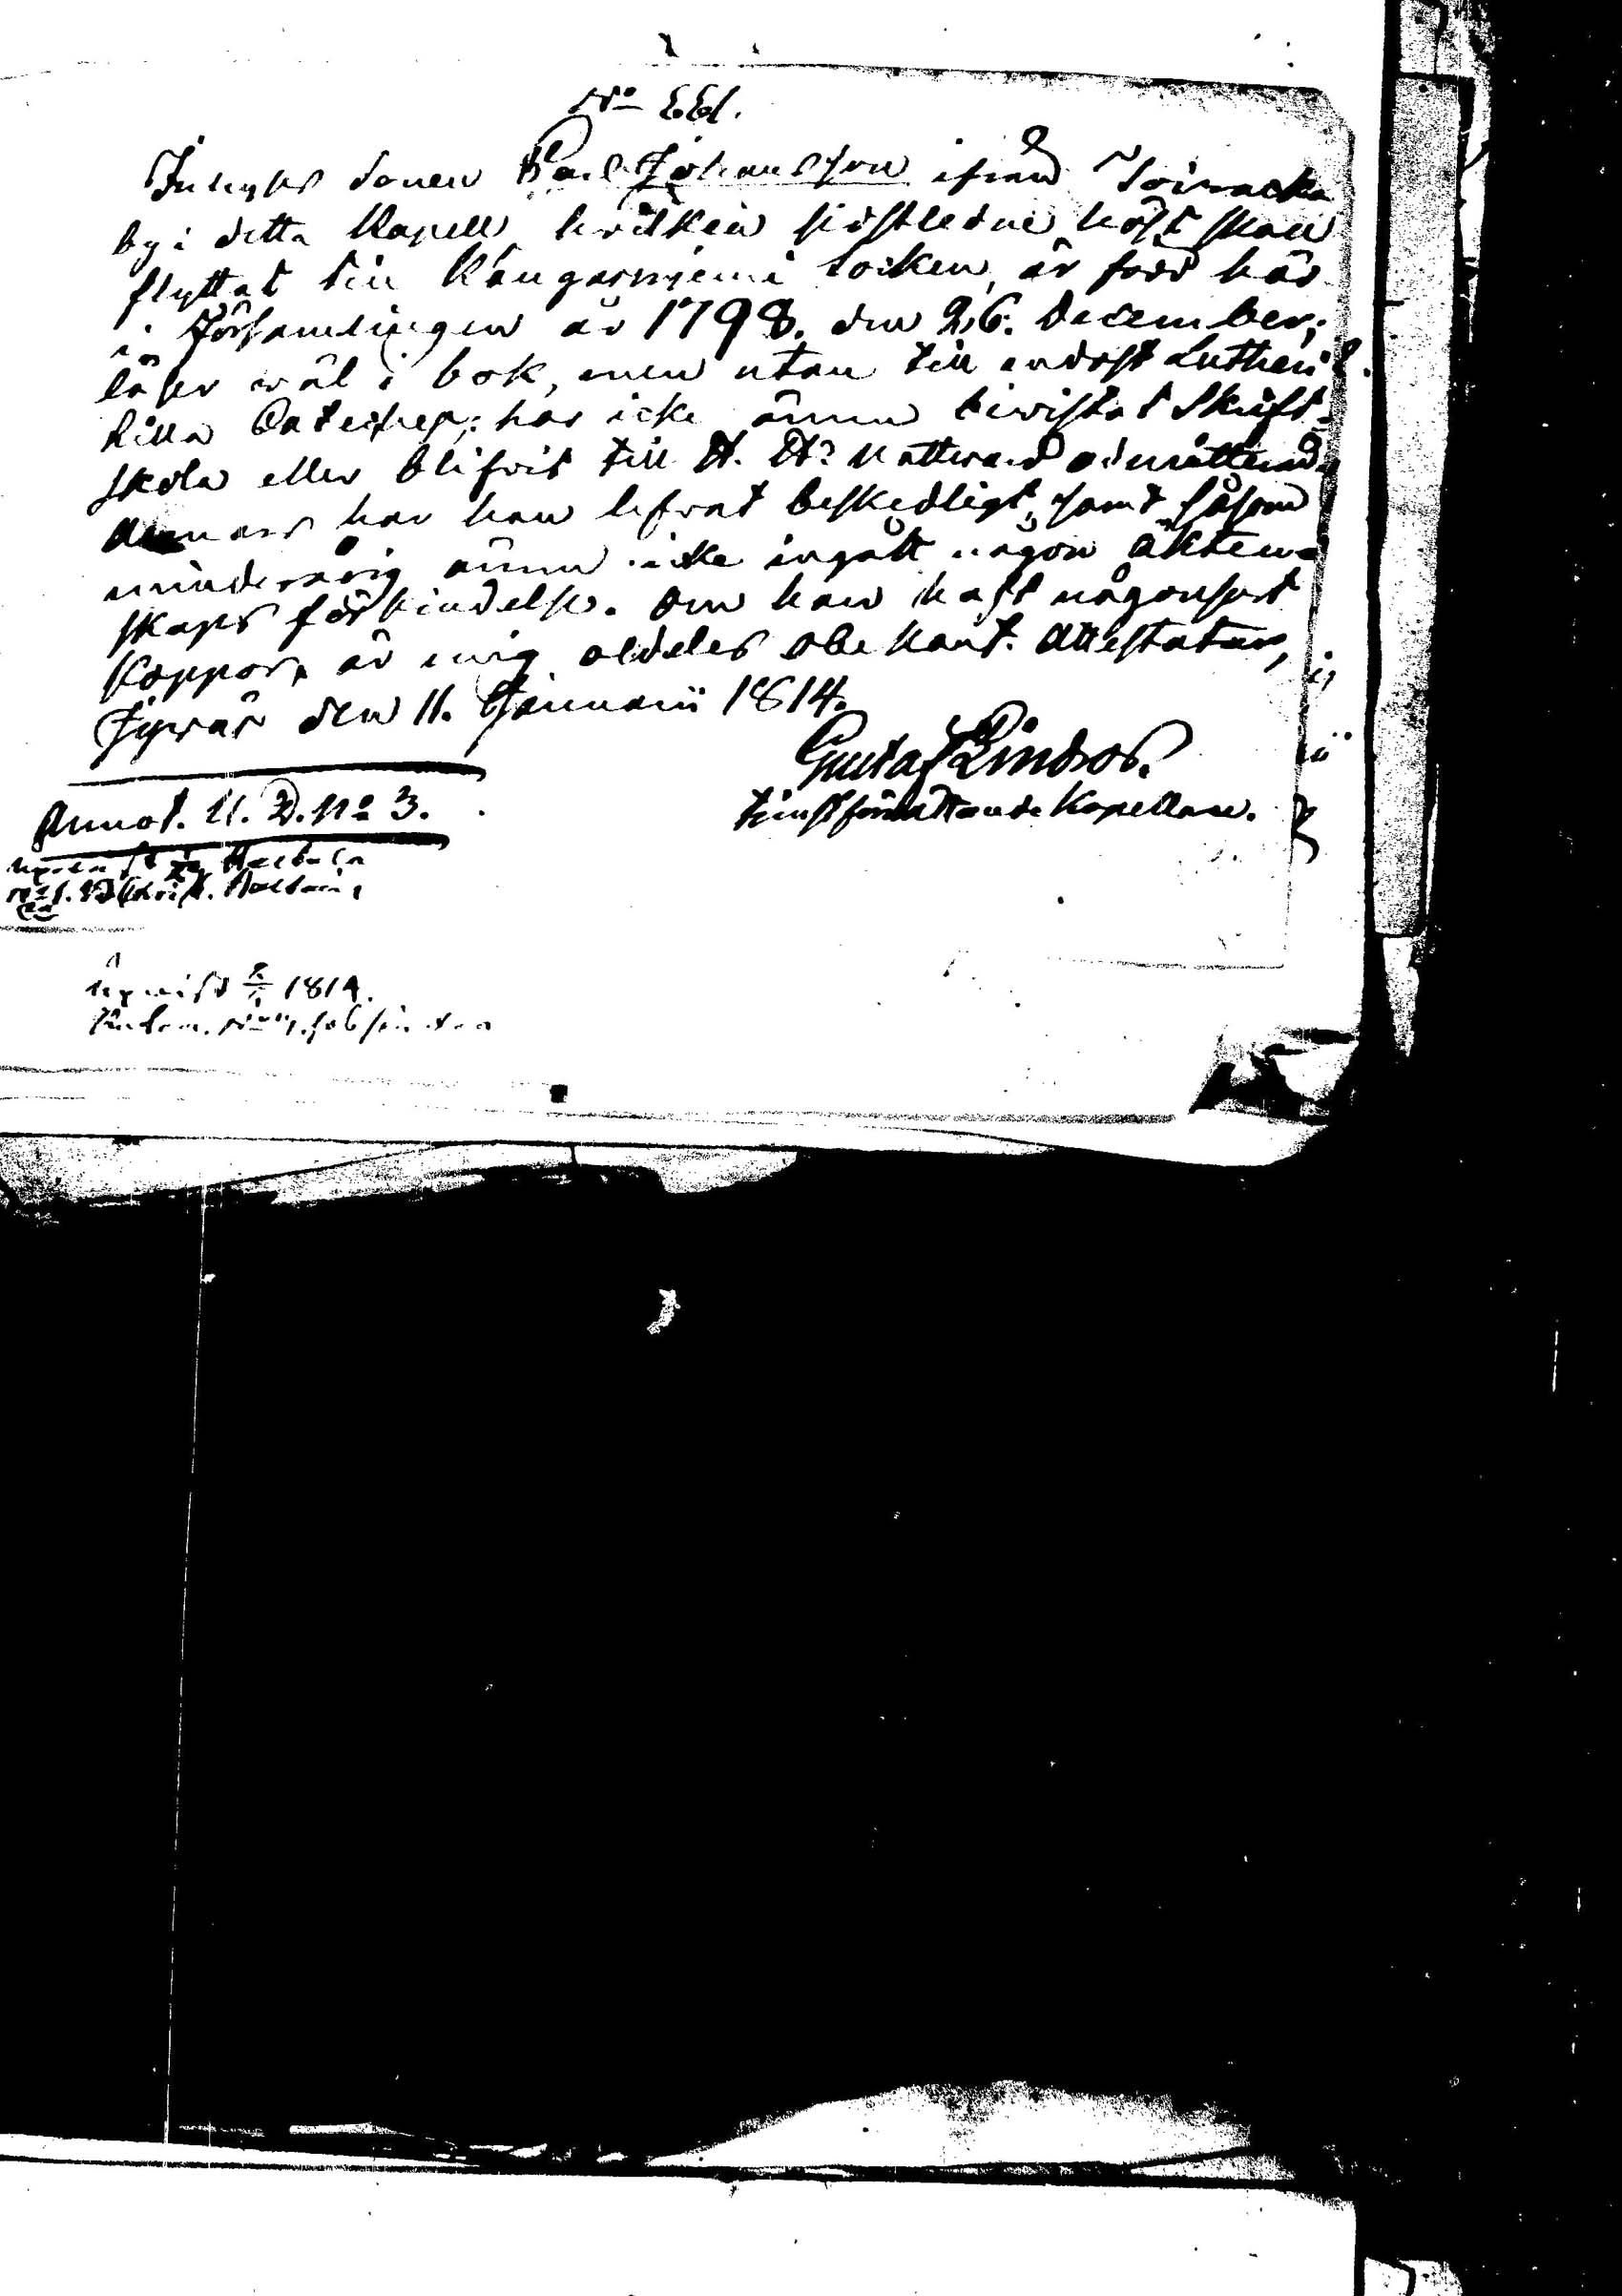 No 661.
Inhyses sonen Paul Johansson ifrån Toivacka
by i detta Kapell, hvilken sidstledne höst skall
flyttat till Kangasniemi Socken, är född här
i Församlingen år 1798. den 26. December;
läser wäl i bok, men utan till endast Lutheri
lilla Cateches; har icke ännu biwistat Skrift-
skola eller blifvit till H. H:s Nattward admitterad;
annars har han lefvat beskedligt, samt såsom
minderårig ännu icke ingått någon äktenskaps
förbindelse. Om han haft någonsort
koppor, är mig aldeles obekant. Attesterar,
Jyväs den 11. Januarii 1814.
Gustaf Lindros.
tjenstförrättande Kapellan.
Annot. U. D. No 3.
upwist 1814.